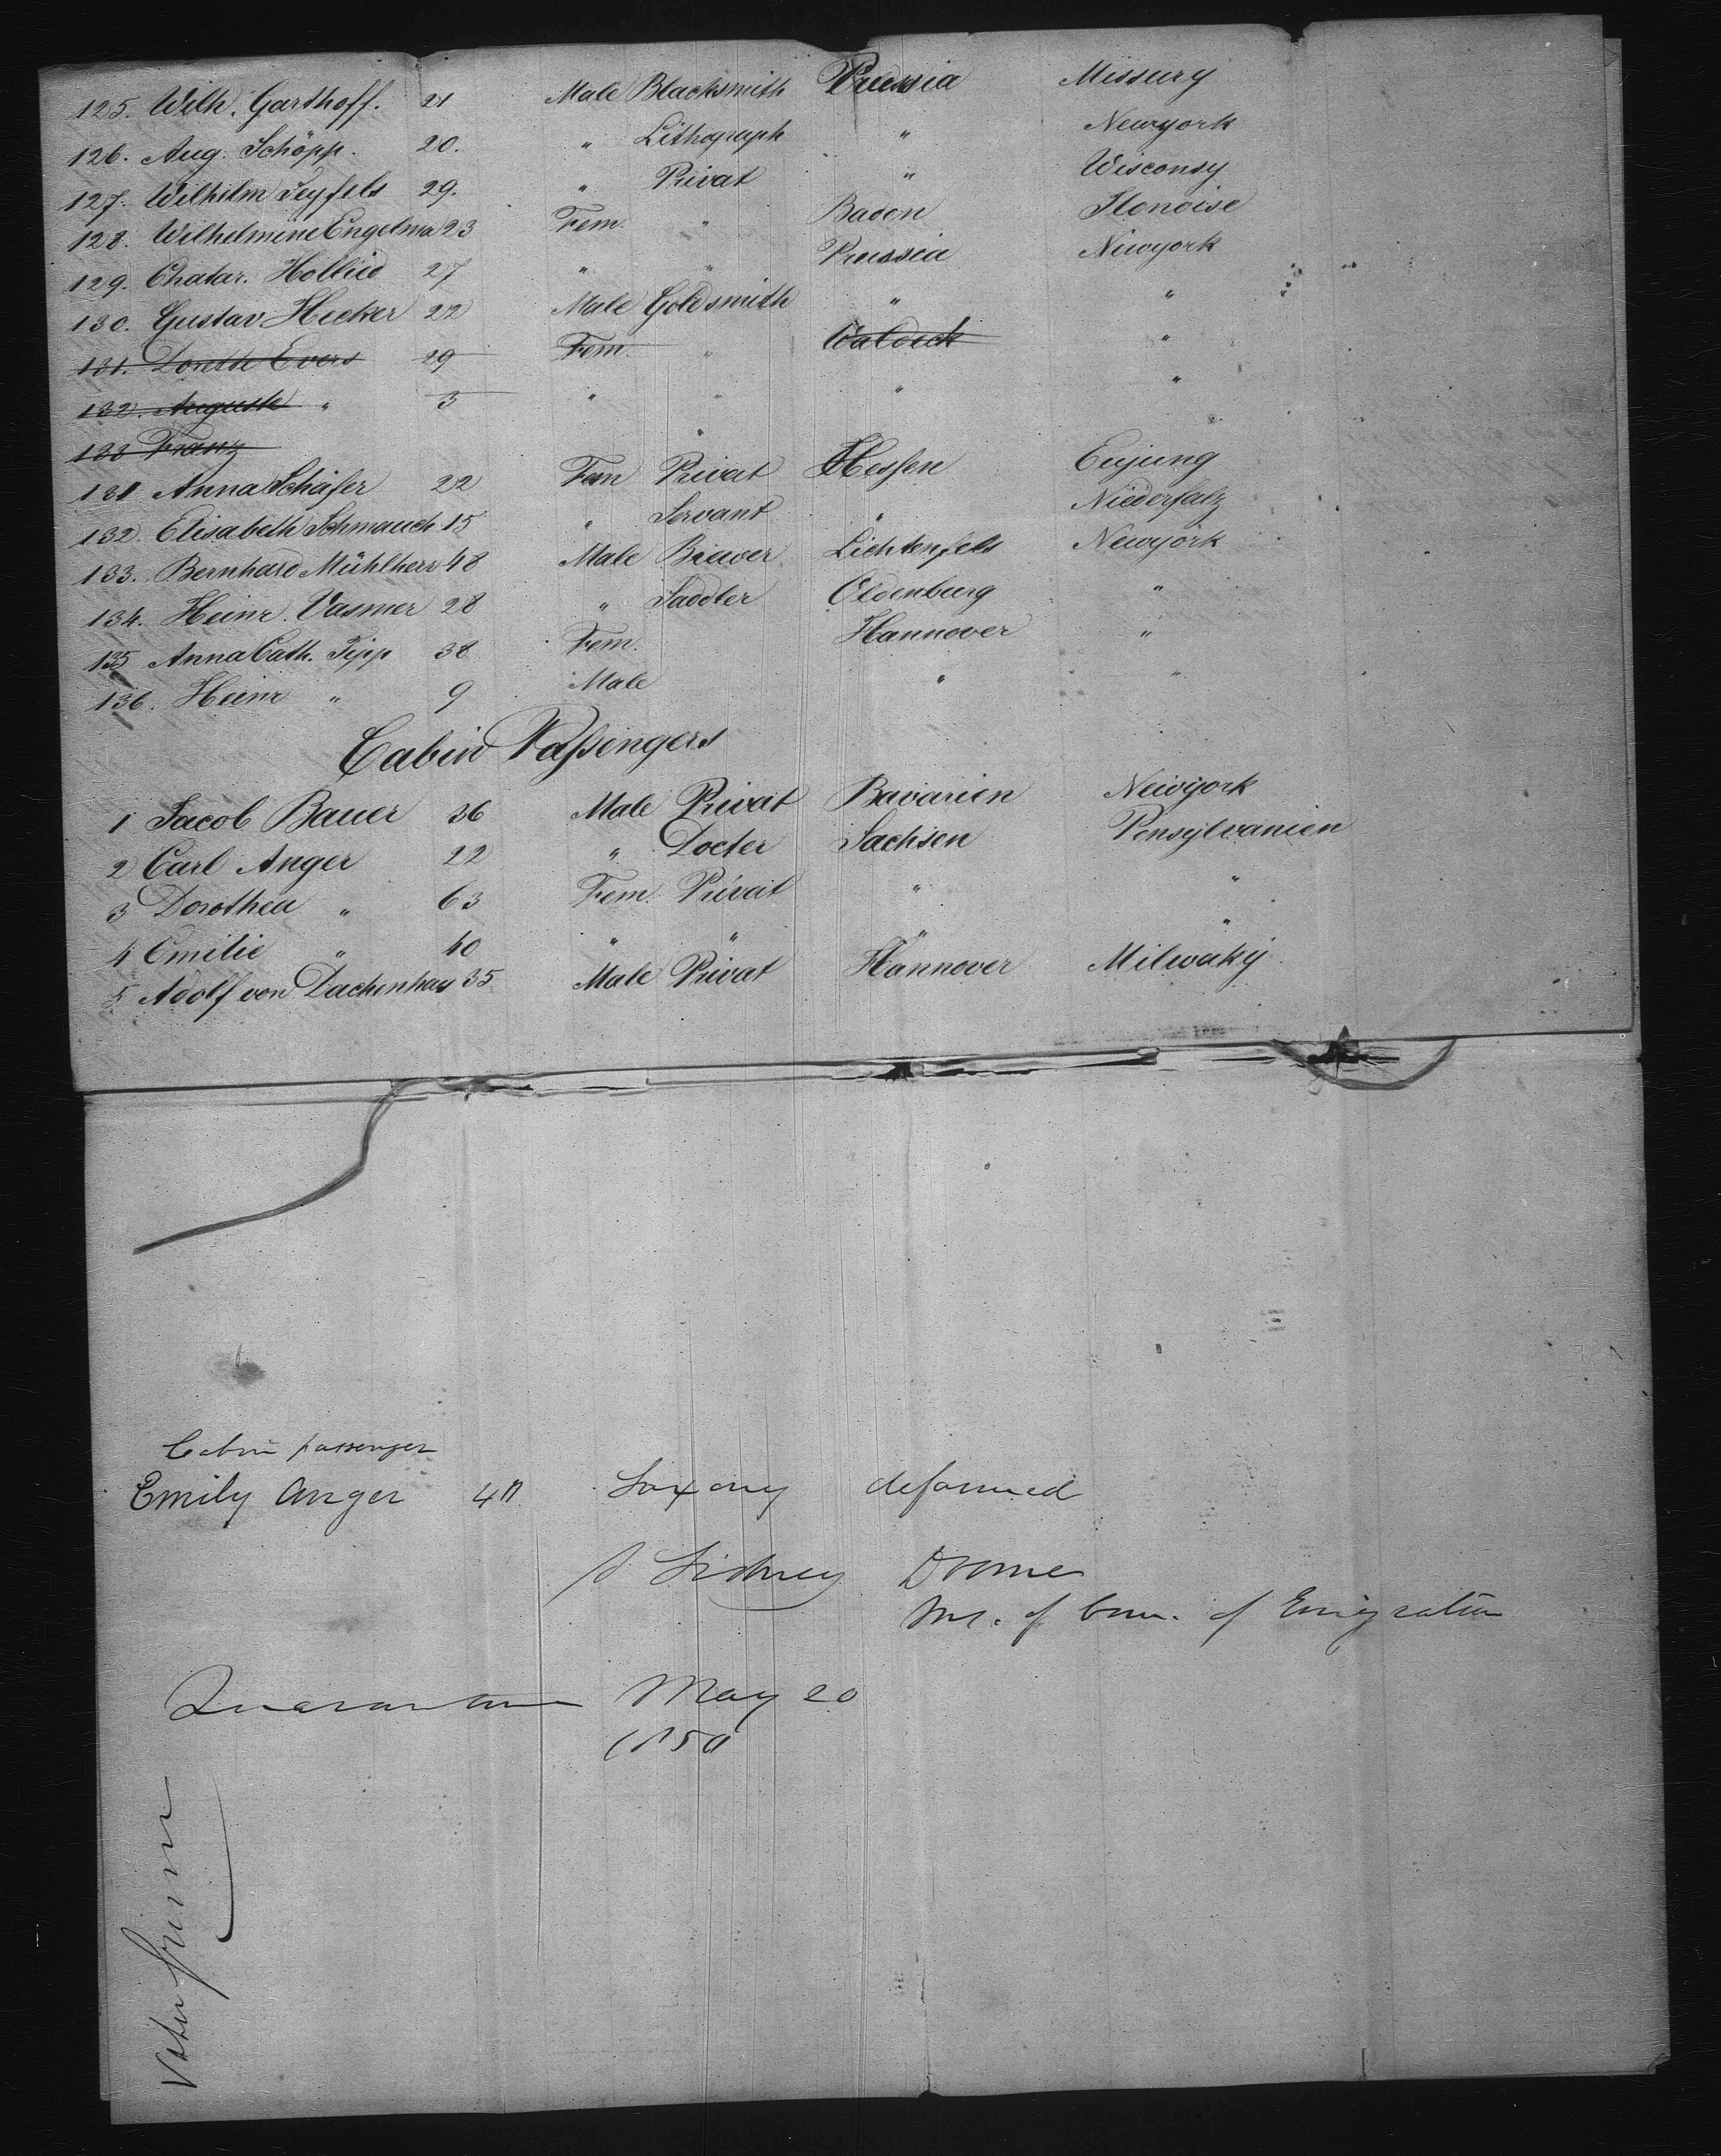 125. Wilh. Garthoff. 21 Male Blacksmith Prussia Missury
126. Aug. Schöpp. 20. " Lithograph " Newyork
127. Wilhelm Seyfels 29. " Privat " Wisconsy
128. Wilhelmine Engelma 23 Fem. " Baden Ilonoise
129. Chatar. Hollied 27 " " Prussia Newyork
130. Gustav Hecker 22 Male Goldsmith " "
131. Doreth Evers 29 Fem. " Waldeck "
132. Auguste " 3 " " " "
133 Franz
131 Anna Schäfer 22 Fem Privat Hessen
132. Elisabeth Schmauch 15 " Servant " Niederfalz
133. Bernhard Mühlherr 48 Male Brewer Lichtenfels Newyork
134. Heinr. Vasmer 28 " Saddler Oldenburg "
135 Anna Cath. Tipp 38 Fem. Hannover "
136. Heinr " 9 Male " "
Cabin Passengers
1 Jacob Bauer 36 Male Privat Bavarien Newyork
2 Carl Anger 22 " Docter Sachsen Pensylvanien
3 Dorothea " 63 Fem. Privat " "
4 Emilie " 40 " " " "
5 Adolf von Dachenhau 35 Male Privat Hannover Milwaky
Cabin passenger
Emily Anger 40 Saxony deformed
Sidney Doane
of Com. of Emigration
Quarantine May 20
1850